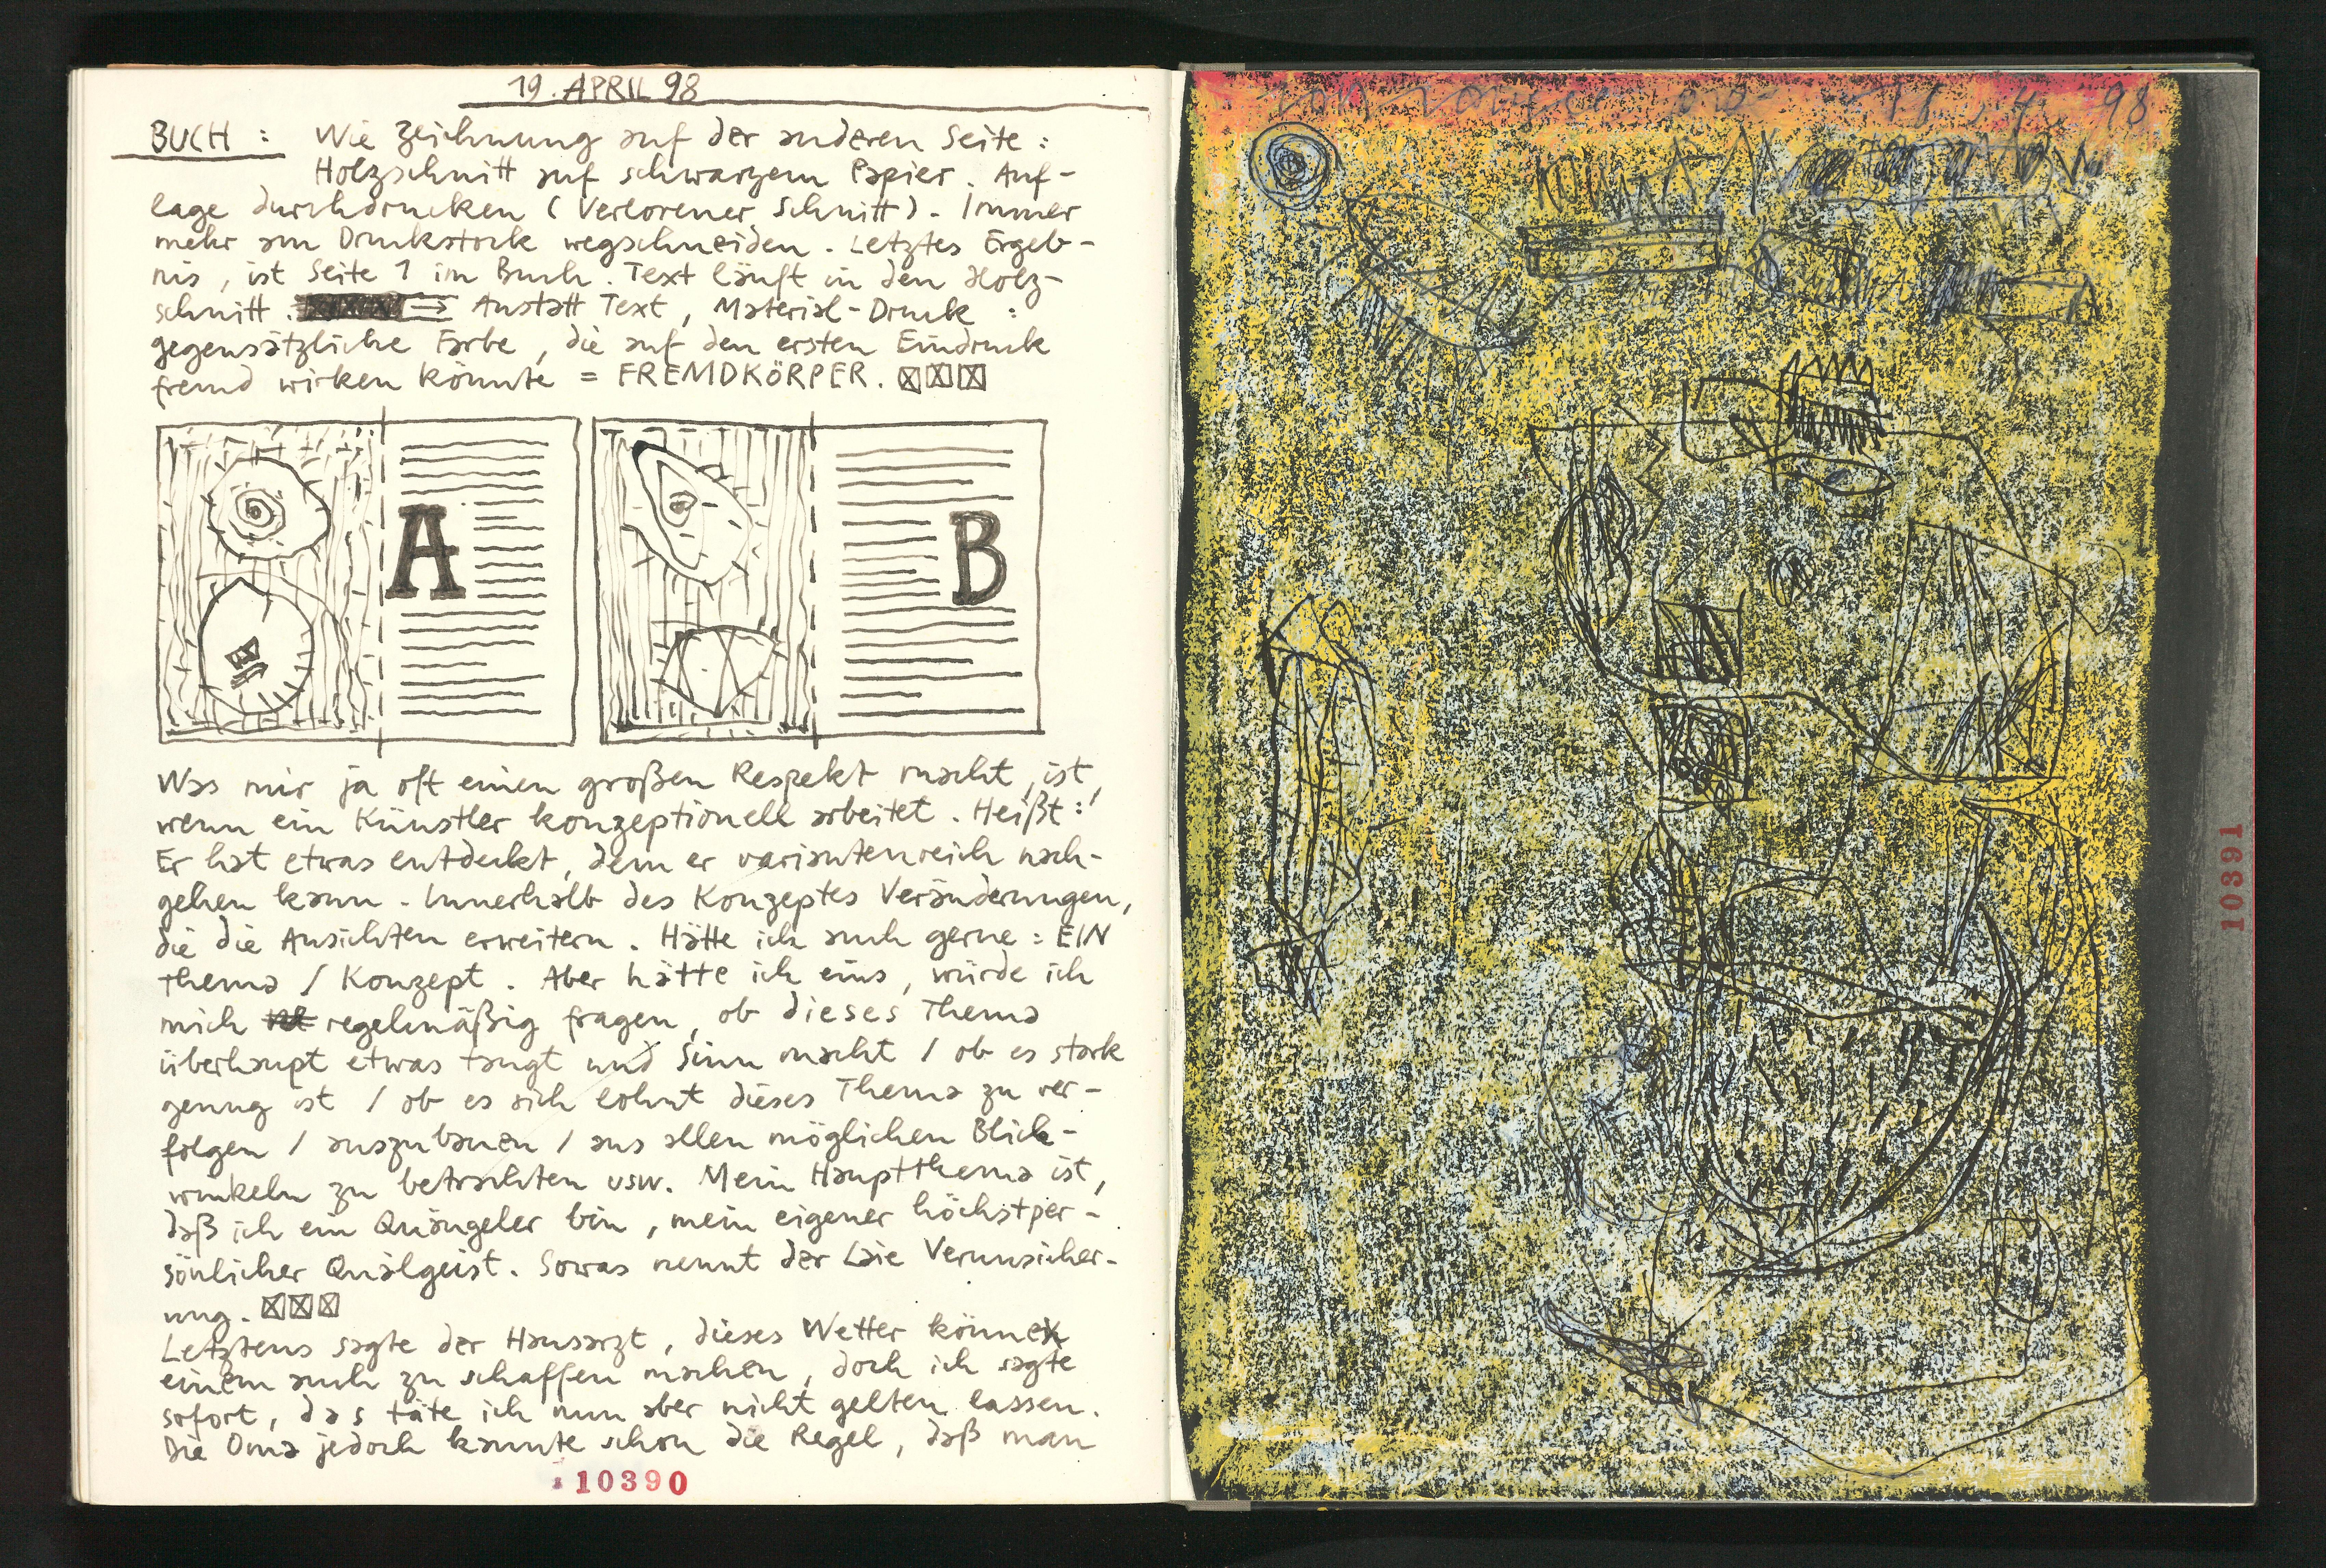 19. APRIL 98
BUCH : Wie Zeichnung auf der anderen Seite :
Holzschnitt auf schwarzem Papier. Auf-
lage durchdrucken (Verlorener Schnitt). Immer
mehr am Druckstock wegschneiden. Letztes Ergeb-
nis, ist Seite 1 im Buch. Text läuft in den Holz-
schnitt. → Anstatt Text, Material-Druck :
gegensätzliche Farbe, die auf den ersten Eindruck
fremd wirken könnte = FREMDKÖRPER.
A
B
Was mir ja oft einen großen Respekt macht, ist,
wenn ein Künstler konzeptionell arbeitet. Heißt :
Er hat etwas entdeckt, dem er variantenreich nach-
gehen kann. Innerhalb des Konzeptes Veränderungen,
die die Ansichten erweitern. Hätte ich auch gerne : EIN
Thema / Konzept. Aber hätte ich eins, würde ich
mich regelmäßig fragen, ob dieses Thema
überhaupt etwas taugt und Sinn macht / ob es stark
genug ist / ob es sich lohnt dieses Thema zu ver-
folgen / auszubauen / aus allen möglichen Blick-
winkeln zu betrachten usw. Mein Hauptthema ist,
daß ich ein Quängeler bin, mein eigener höchstper-
sönlicher Quälgeist. Sowas nennt der Laie Verunsicher-
ung.
Letztens sagte der Hausarzt, dieses Wetter könne
einem auch zu schaffen machen, doch ich sagte
sofort, das täte ich nun aber nicht gelten lassen.
Die Oma jedoch kannte schon die Regel, daß man
10390
98
10391